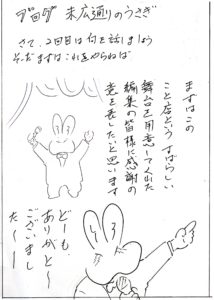 ブログ 末広通りのうさぎ
さて、2回目は何を話しましょう
そだまずはこれをやらねば
まずはこの
こと店という すばらしい
舞台を用意してくれた
編集の皆様に感謝の
意を表したいと思います
どーも、
ありがと〜
ございまし
た〜〜